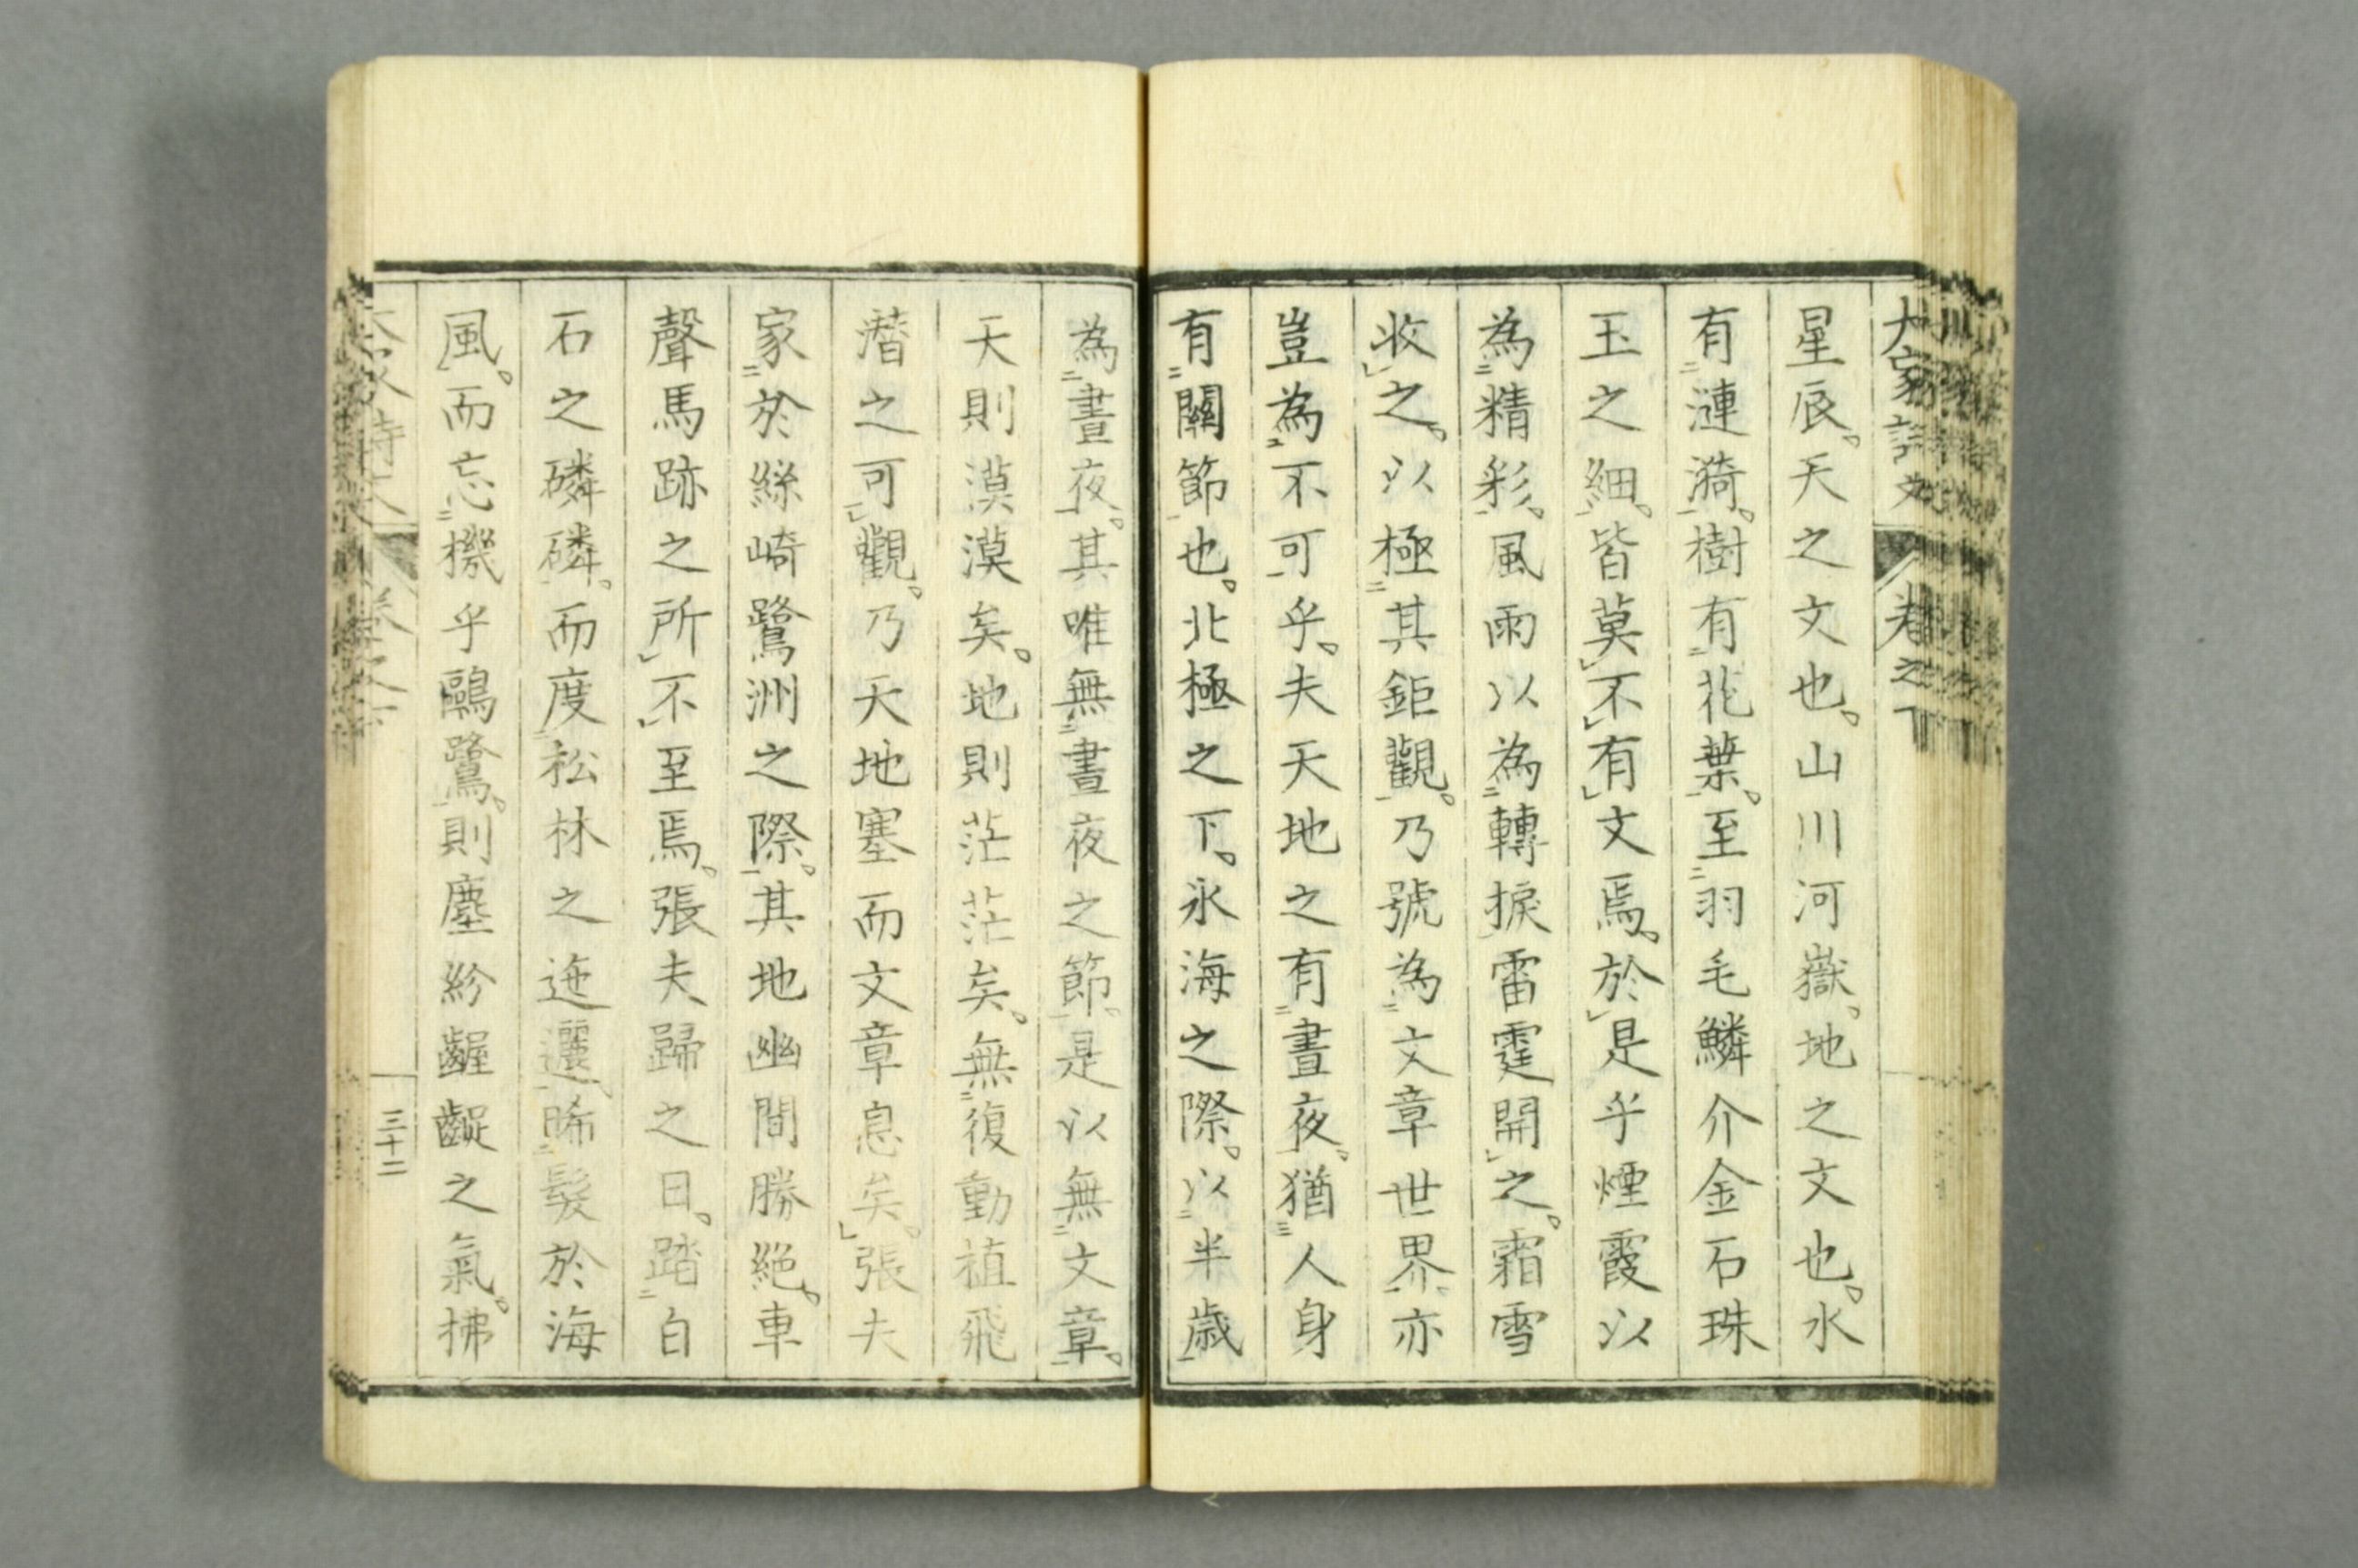 大家詩文 卷之下
星辰。天之文也。山川河嶽。地之文也。水
有漣漪。樹有花葉。至羽毛鱗介金石珠
玉之細。皆莫不有文焉。於是乎煙霞以
為精彩。風雨以為轉捩雷霆開之。霜雪
收之。以極其鉅觀。乃號為文章世界亦
豈為不可乎。夫天地之有晝夜。猶人身
有關節也。北極之下。氷海之際。以半歳
為晝夜。其唯無晝夜之節。是以無文章。
天則漠漠矣。地則茫茫矣。無復動植飛
潛之可觀。乃天地塞而文章息矣。張夫
家於絲崎鷺洲之際。其地幽間勝絕。車
聲馬跡之所不至焉。張夫歸之日。踏白
石之磷磷。而度松林之迤邐、晞髮於海
風。而忘機乎鷗鷺。則塵紛齷齪之氣。拂
三十二